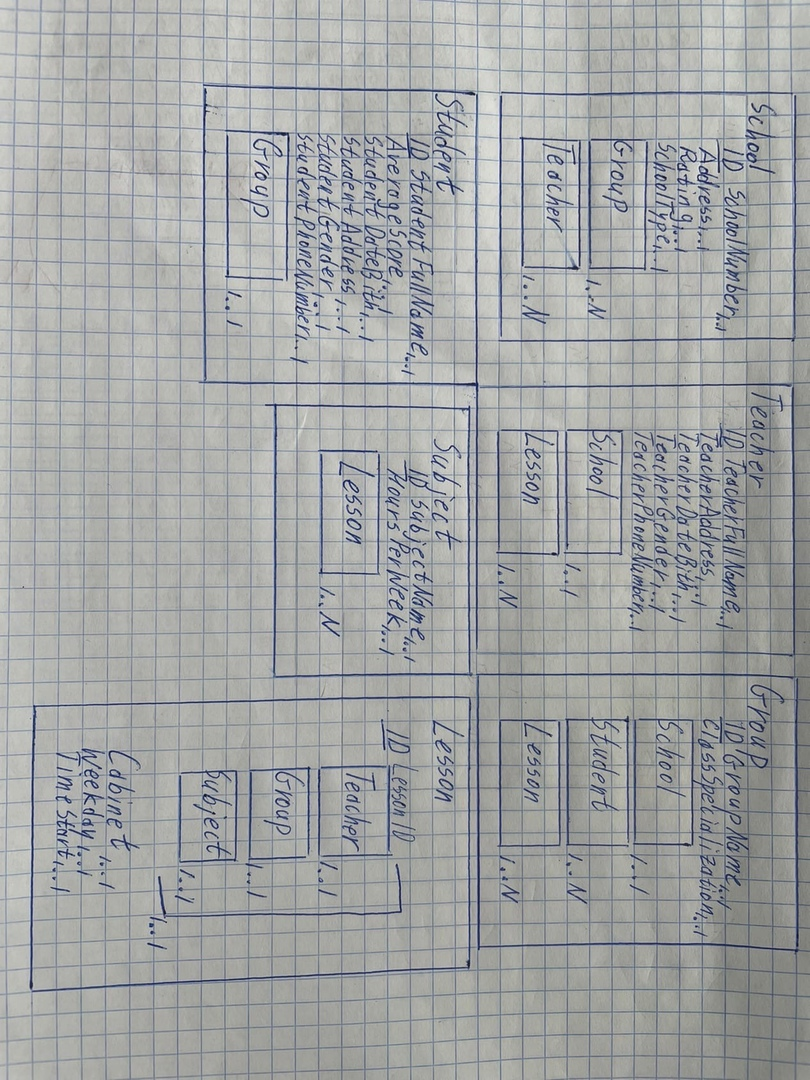 School
ID SchoolNumber,..1
Address,..1
Rating,..1
SchoolType,..1
Group
1..N
Teacher
1..N
Teacher
ID TeacherFullName,..1
TeacherAddress,..1
TeacherDateBith,..1
TeacherGender,..1
TeacherPhoneNumber,..1
School
1..1
Lesson
1..N
Group
ID GroupName,..1
ClassSpecialization,..1
School
1..1
Student
1..N
Lesson
1..N
Student
ID StudentFullName,..1
AverageScore,..1
StudentDateBith,..1
StudentAddress,..1
StudentGender,..1
StudentPhoneNumber,..1
Group
1..1
Subject
ID SubjectName,..1
HoursPerWeek,..1
Lesson
1..N
Lesson
ID LessonID
Teacher
1..1
Group
1..1
Subject
1..1
1..1
Cabinet,..1
Weekday,..1
TimeStart,..1